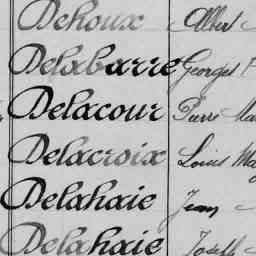 Dehoux Albert
Delabarre Georges
Delacour Pierre Ma
Delacroix Louis Ma
Delahaie Jean
Delahaie Joseph